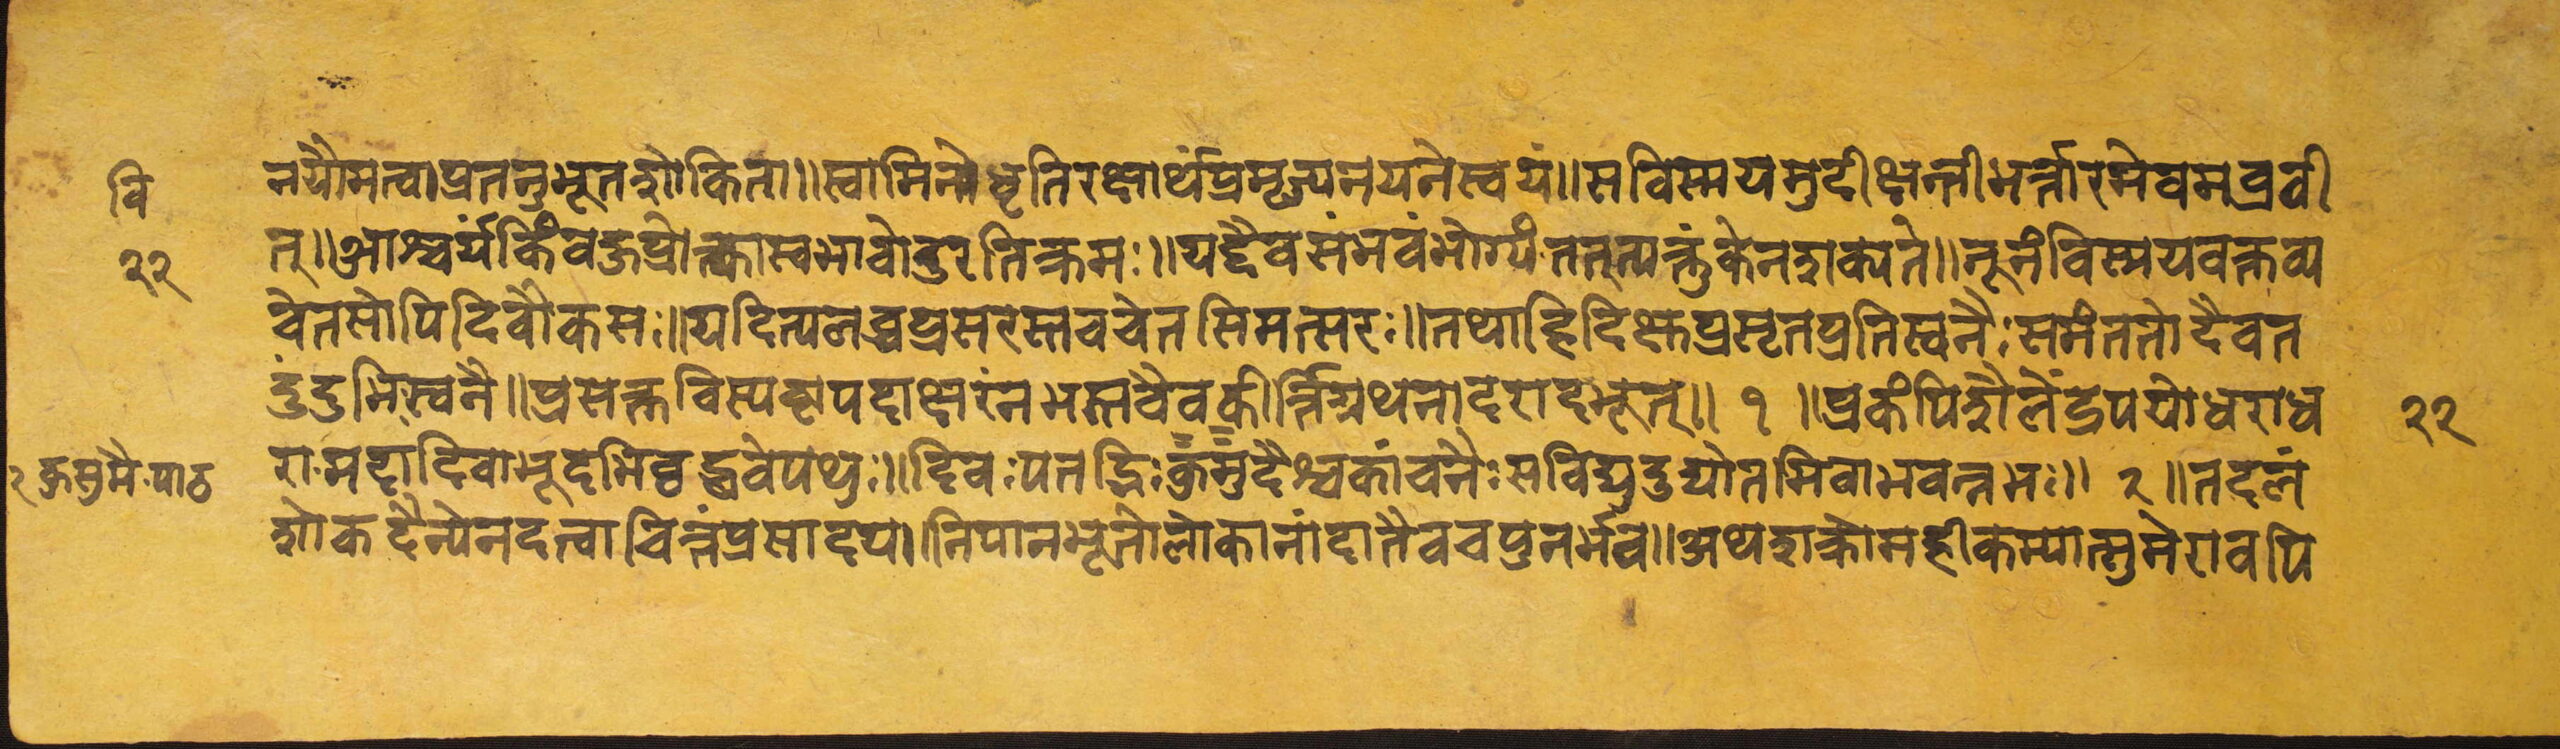 वि
२२
नयौमत्वाप्रतनुभूतशोकिता॥स्वामिनोधृतिरक्षार्थंप्रमृज्यनयनेस्वयं॥सविस्मयमुदीक्षन्तीभर्त्तारमेवमब्रवी
त्॥आश्चर्यंकिंवज्रप्रोक्तास्वभावोदुरतिक्रमः॥यद्दैवसंभवंभोग्यंतत्त्यक्तुंकेनशक्यते॥नूनंविस्मयवक्तव्य
चेतसोपिदिवौकसः॥यदित्यलब्धप्रसरस्तवचेतसिमत्सरः॥तथाहिदिक्षुप्रसृतप्रतिस्वनैःसमंततोदैवत
दुंदुभिस्वनैः॥प्रसक्तविस्पष्टपदाक्षरंनभस्तवैवकीर्त्तिग्रथनादरादभूत्॥ १ ॥प्रकंपिशैलेंद्रपयोधराध
रामदादिवाभूदभिवृद्धवेपथुः॥दिवःपतद्भिःक्रमुदैश्चकांचनैःसविद्युदुद्योतमिवाभवन्नभः॥ २ ॥तदलं
शोकदैन्येनदत्वाचित्तंप्रसादय॥निपानभूतोलोकानांदातैवचपुनर्भव॥अथशक्रोमहीकम्पात्सुमेरावपि
२२
२ कुसुमैःपाठ